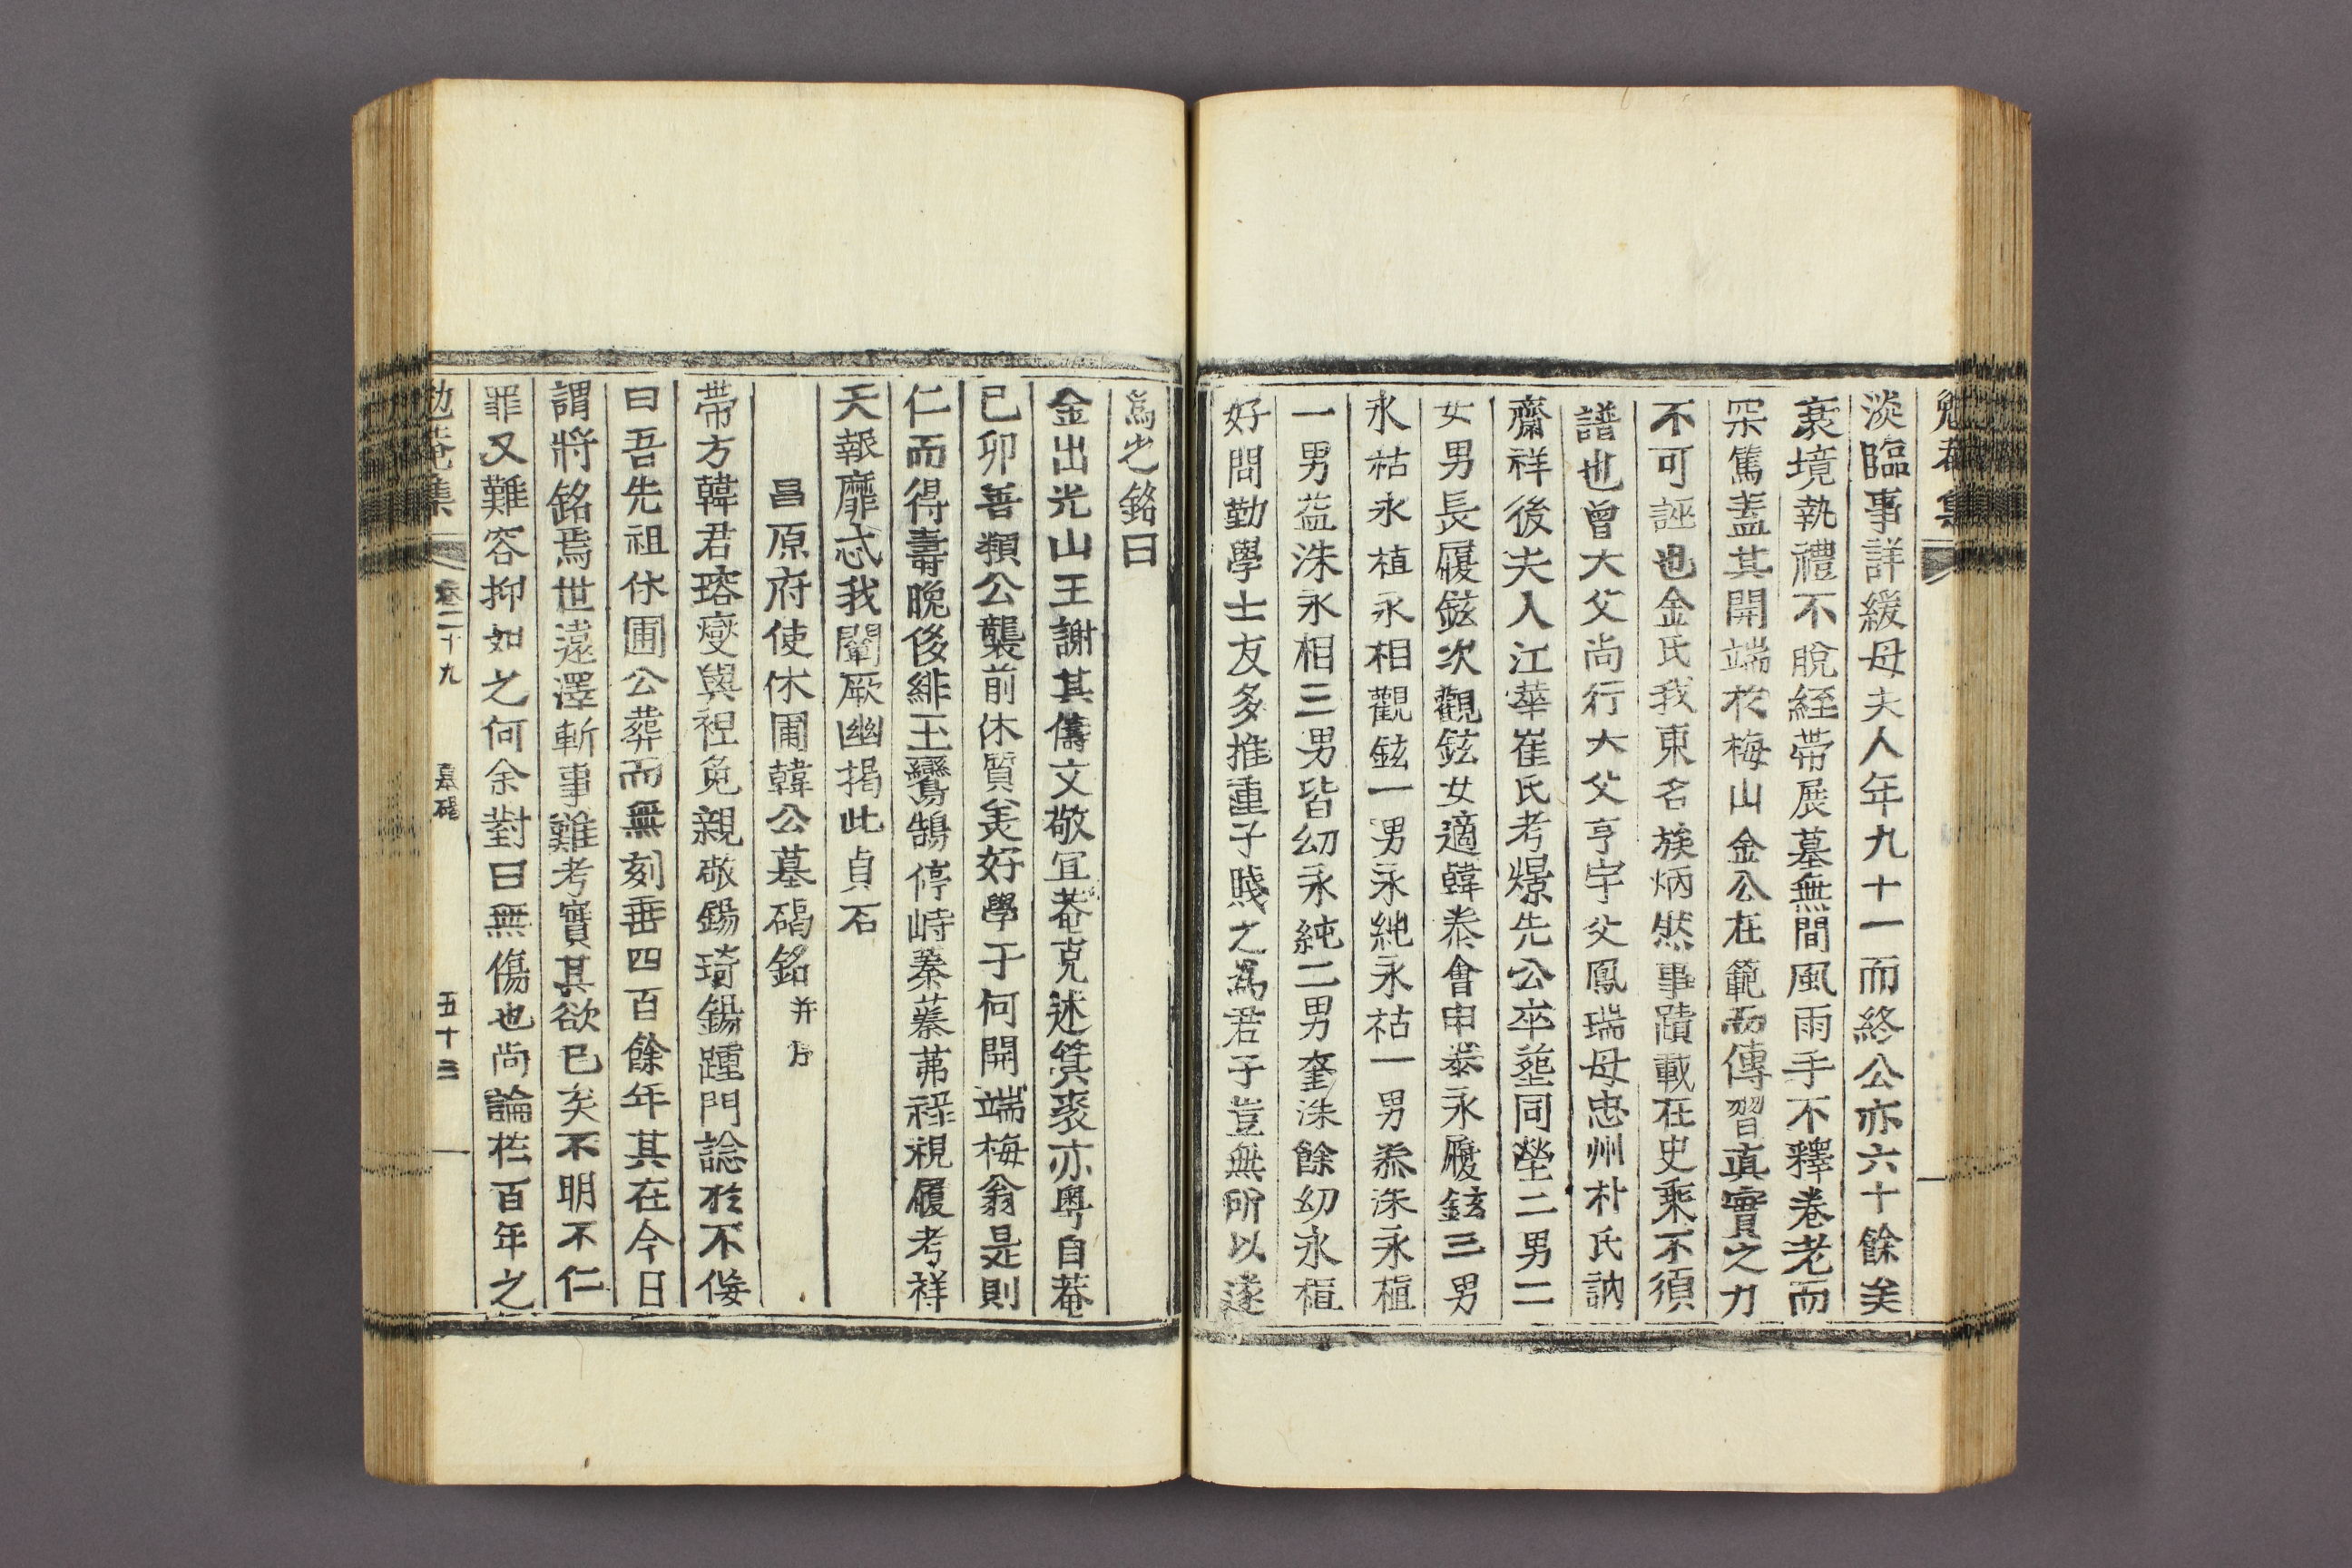 勉菴集
淡臨事詳緩母夫人年九十一而終公亦六十餘矣
衰境執禮不脫絰帶展墓無間風雨手不釋卷老而
采篤盖其開端於梅山金公在範而傳習眞實之力
不可誣也金氏我東名族炳然事蹟載在史乘不須
譜也曾大父尙行大父亨宇父鳳瑞母忠州朴氏訥
齋祥後夫人江華崔氏考熿先公卒葬同塋二男二
女男長履鉉次觀鉉女適韓泰會申泰永履鉉三男
永祜永植永相觀鉉一男永純永祜一男泰洙永植
一男益洙永相三男皆幼永純二男奎洙餘幼永植
好問勤學士友多推重子賤之爲君子豈無所以遂
爲之銘曰
金出光山王謝其儔文敬冝菴克述箕裘亦粤自菴
己卯善類公襲前休質美好學于何開端梅翁是則
仁而得壽晩後緋玉鸞鵠停峙蓁蓁茀祿視履考祥
天報靡忒我闡厥幽揭此貞石
昌原府使休圃韓公墓碣銘 幷序
帶方韓君瑢燮與袒免親敬錫琦錫踵門諗於不佞
曰吾先祖休圃公葬而無刻垂四百餘年其在今日
謂將銘焉世遠澤斬事難考實其欲已矣不明不仁
罪又難容抑如之何余對曰無傷也尙論於百年之
勉菴集 卷二十九 墓碣 五十三